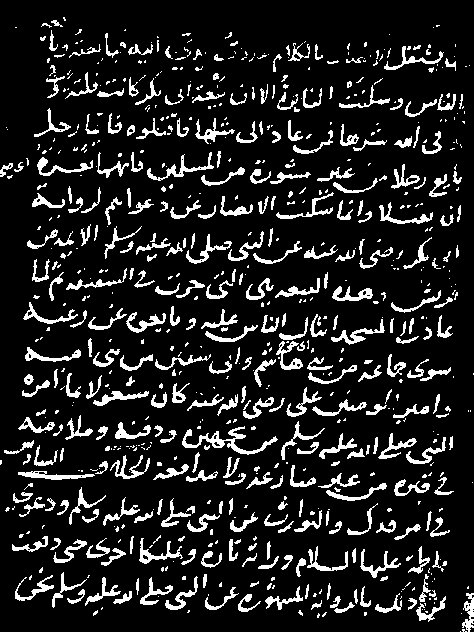 يشتغل الانصار بالكلام مددت يدي اليه فبايعته وبايعه
الناس وسكنت النايرة الا ان بيعة ابى بكر كانت فلتة وقى
وقى الله شرها فمن عاد الى مثلها فاقتلوه فايما رجل
بايع رجلا من غير مشورة من المسلمين فانهما تغرة
ان يقتلا وانما سكنت الانصار عن دعواهم لرواية
ابى بكر رضى الله عنه عن النبى صلى الله عليه وسلم الايمة من
قريش وهذه البيعة هى التى جرت فى السقيفة ثم لما
عاد الى المسجد انثال الناس عليه وبايعوه عن رغبة
سوى جماعة من بنى هاشم وابى سفين من بنى امية
وامير المومنين على رضى الله عنه كان مشغولا بما امره
النبى صلى الله عليه وسلم من تجهيزه ودفنه وملازمة
قبره من غير منازعة ولا مدافعة الخلاف السادس
فى امر فدك والتوارث عن النبى صلى الله عليه وسلم ودعوى
فاطمة عليها السلام وراثة تارة وتمليكا اخرى حتى دفعت
عن ذلك بالرواية المشهورة عن النبى صلى الله عليه وسلم نحن